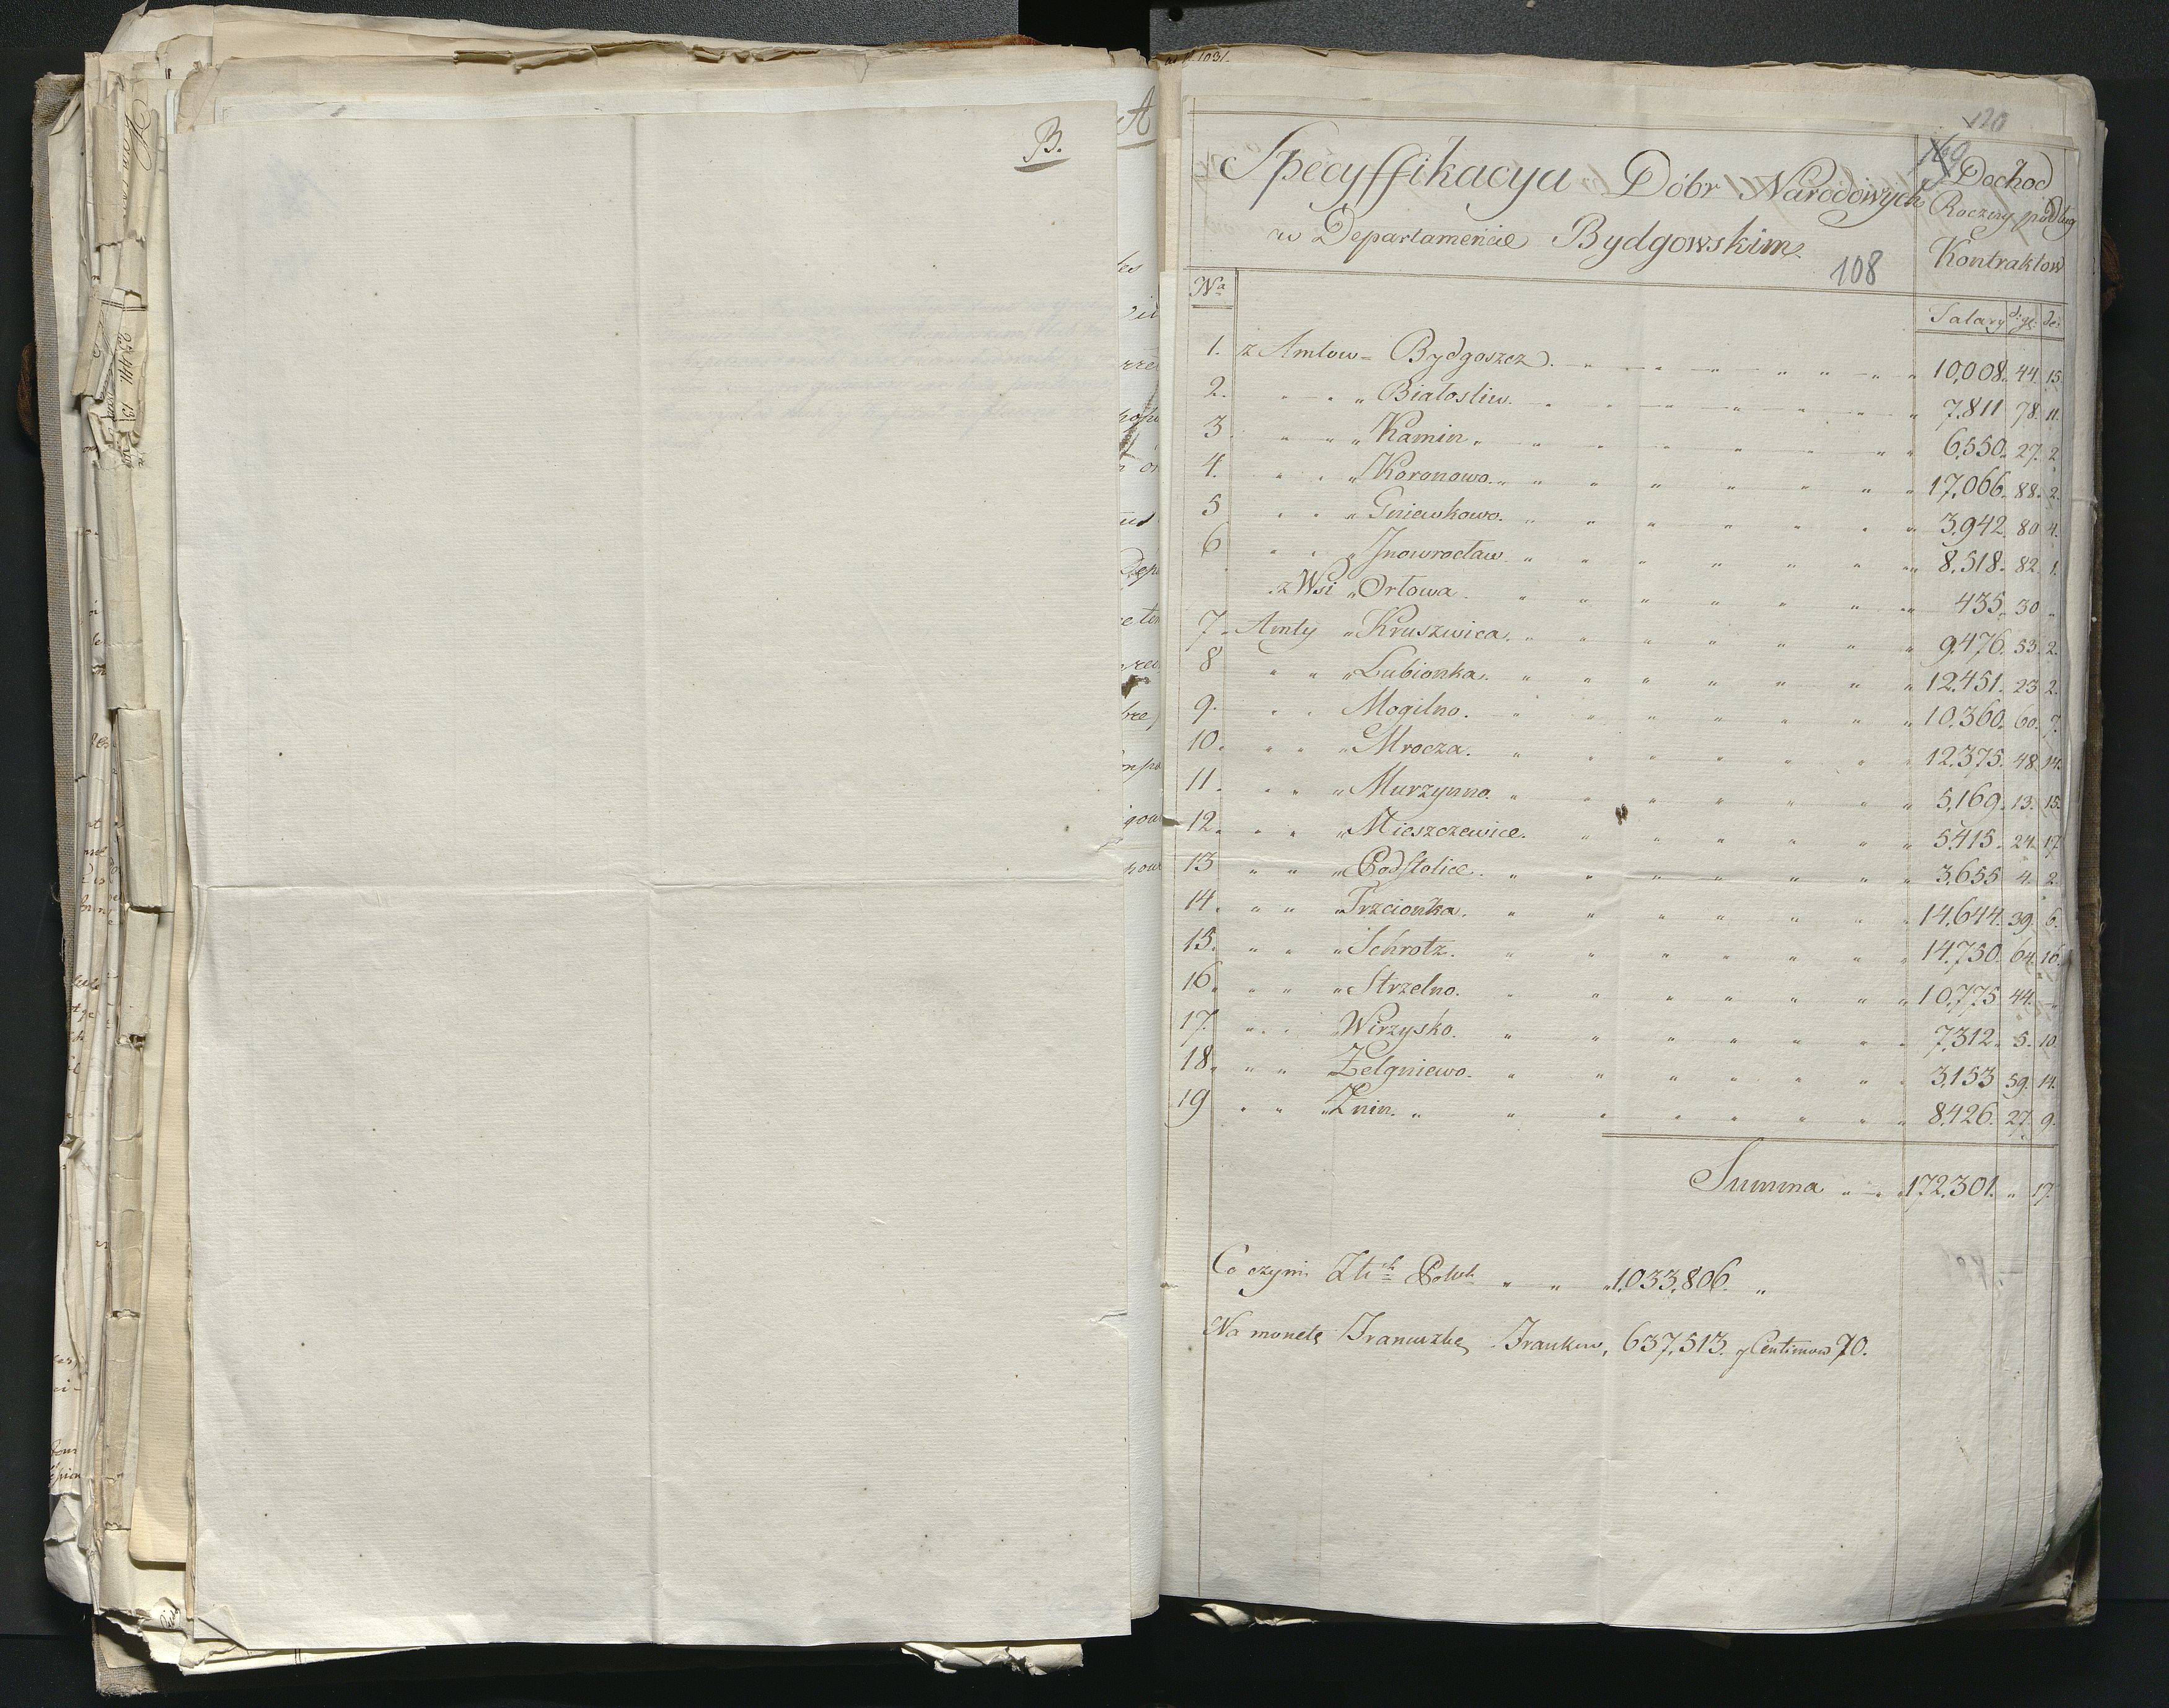 B.
A
120
Specyffikacya Dóbr Narodowych
w Departamencie Bydgowskim.
108
Dochod
Roczny podług
Kontraktow
No
Talary d: gr: de:
1. z Amtow = Bydgoszcz. 10,008. 44. 15.
2. " Białosliw. 7,811 78. 11.
3 " Kamin. 6,550. 27. 2
4. " Koronowo. 17,066. 88. 2.
5 " Gniewkowo. 3,942. 80 4.
6 " Jnowrocław. 8,518. 82. 1.
z Wsi " Orłowa. 435. 30 "
7. Amty " Kruszwica. 9,476. 53. 2.
8 " Lubionka. 12,451. 23 2.
9. " Mogilno. 10,360. 60. 7.
10. " Mrocza. 12,375. 48. 14.
11. " Murzynno. 5,169. 13. 15.
12. " Mieszczewice. 5,415. 24. 17.
13 " Podstolice. 3,655 4. 2.
14. " Trzcionka. 14,644. 39. 6.
15. " Schrotz. 14,750. 64. 16.
16. " Strzelno. 10,775 44. "
17. " Wirzysko. 7,312. 5. 10.
18. " Zelgniewo. 3,153 59. 14.
19 " Znin. 8,426. 27. 9.
Summa " " 172,301. " 17.
Co czyni Złch Polch " " 1,033,806. "
Na monetę Francuzką Franków, 637,513. y Centimow 70.